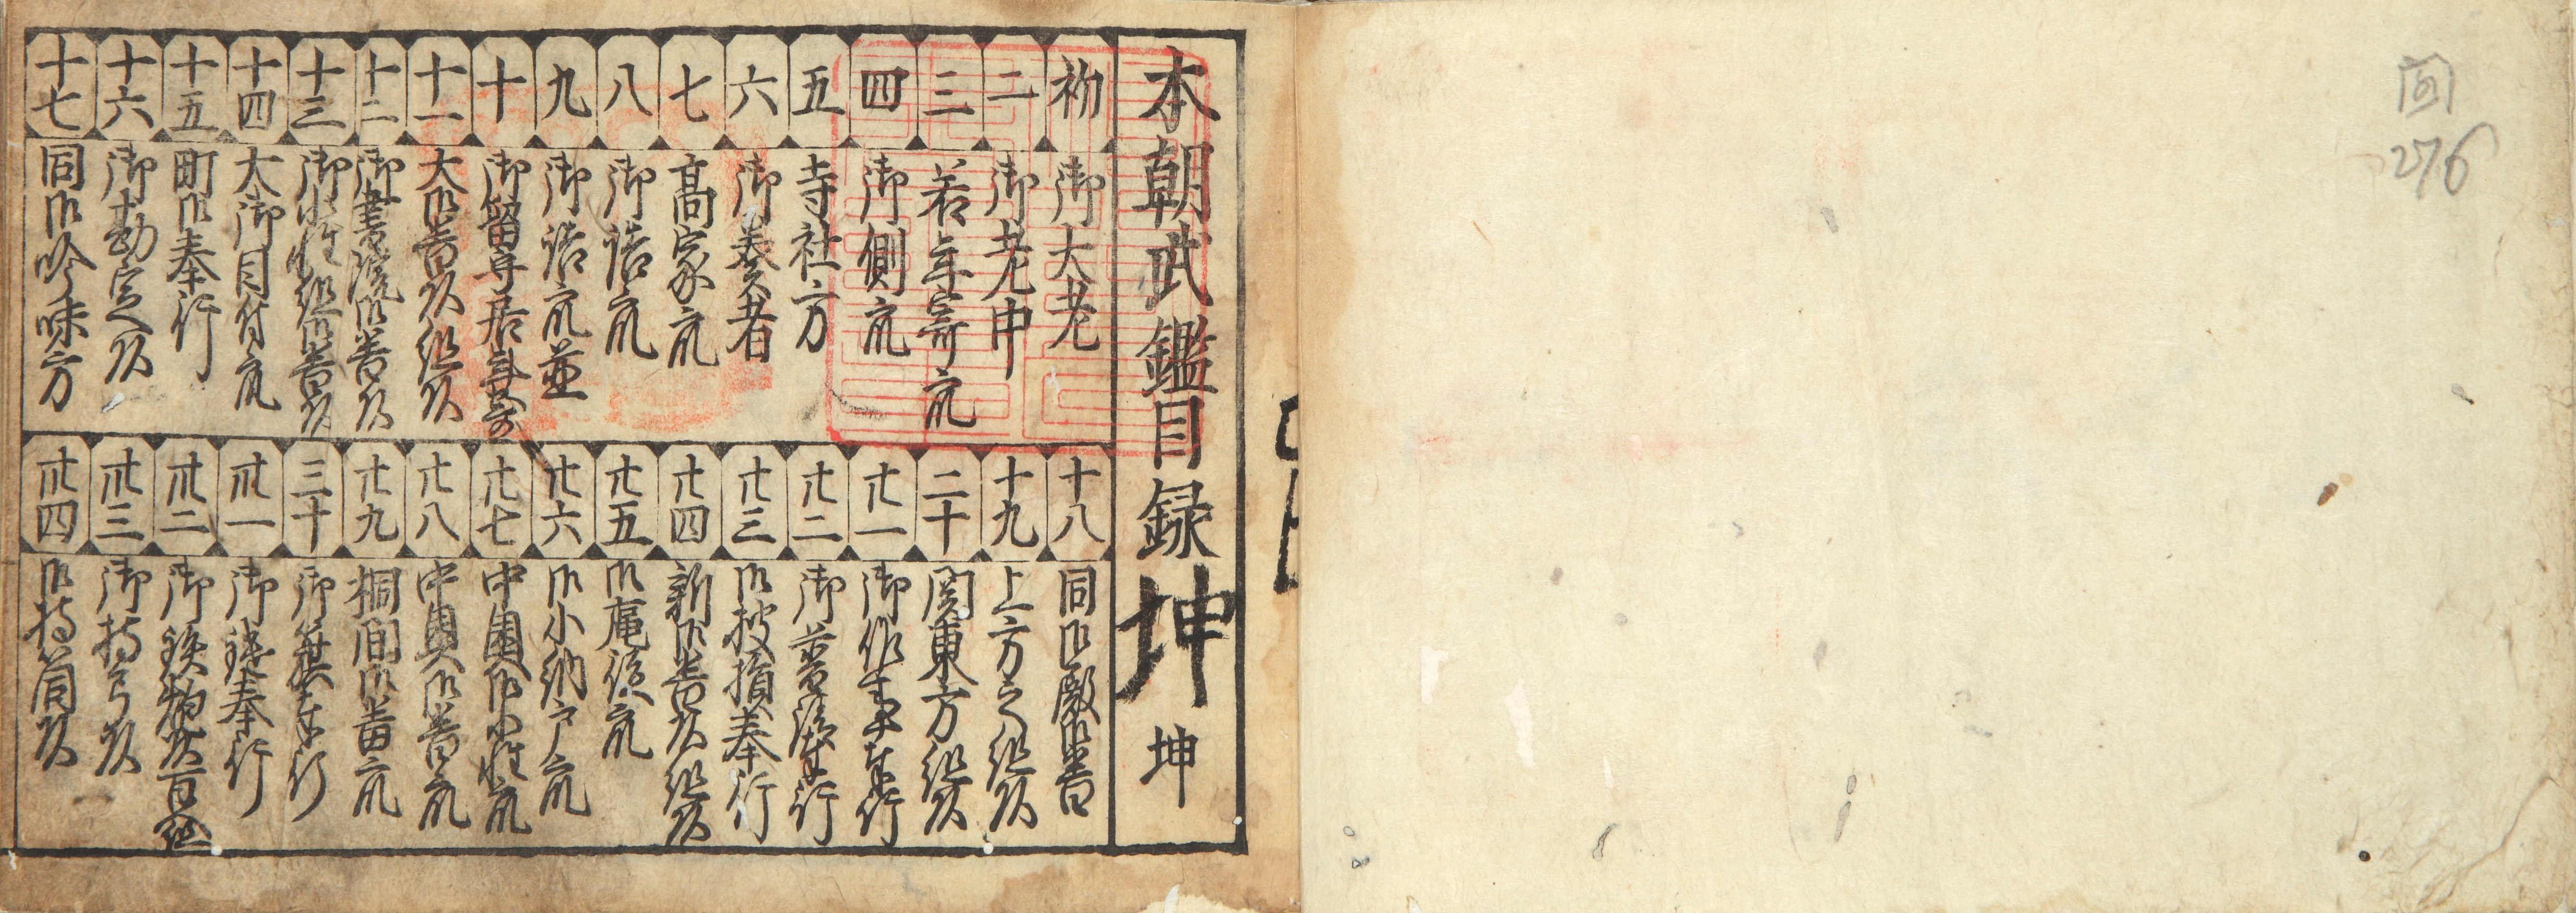 回
276
本朝武鑑目録坤 坤
初 御大老
二 御老中
三 若年寄衆
四 御側衆
五 寺社方
六 御奏者
七 高家衆
八 御詰衆
九 御詰衆並
十 御留守居年寄
十一 大御番頭組頭
十二 御書院御番頭
十三 御小性組御番頭
十四 大御目付衆
十五 町御奉行
十六 御勘定頭
十七 同御吟味方
十八 同御殿御番
十九 上方之組頭
二十 関東方組頭
廿一 御作事奉行
廿二 御普請奉行
廿三 御披損奉行
廿四 新御番頭組頭
廿五 御庵従衆
廿六 御小納戸衆
廿七 中奥御小性衆
廿八 中奥御番衆
廿九 桐間御番衆
三十 御籏奉行
卅一 御鑓奉行
卅二 御鉄炮頭百組
卅三 御持弓頭
卅四 御持筒頭